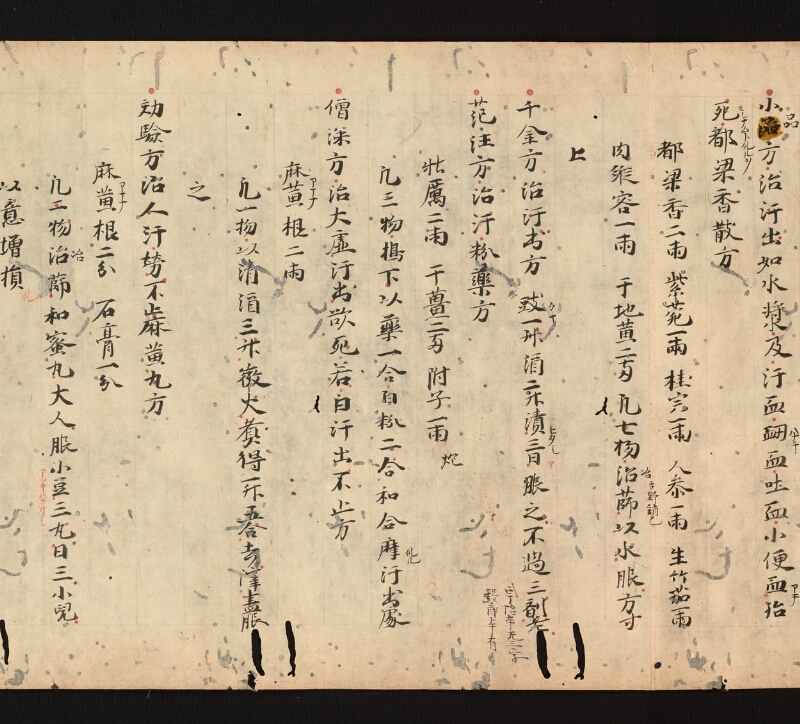 小品方治汗出如水漿及汗血衂血吐血小便血殆
死都梁香散方
都梁香二兩 紫菀一兩 桂宍一兩 人参一兩 生竹茹一兩
肉縱容一兩 干地黄二兩 凡七物治篩以水服方寸
匕
千金方治汗出方 豉一升酒二升漬三日服之不過三劑差
范汪方治汗粉藥方
牡厲二兩 干薑二兩 附子一兩 炮
凡三物搗下以藥一合白粉二合和合摩汗出處
僧深方治大虚汗出欲死若白汗出不止方
麻黄根二兩
凡一物以清酒三升微火煑得一升五合去滓盡服
之
効驗方治人汗勞不止麻黄丸方
麻黄根二分 石膏一分
凡二物治篩和蜜丸大人服小豆三丸日三小兒
以意增損